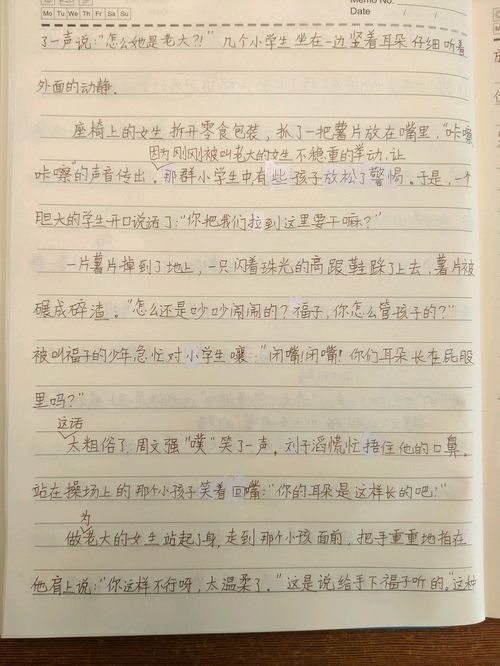 Memo No.
Mo Tu We Th Fr Sa Su
Date / /
了一声说："怎么她是老大?!" 几个小学生坐在一边竖着耳朵仔细听着
外面的动静.
座椅上的女生拆开零食包装，抓了一把薯片放在嘴里，"咔嚓
因为刚刚被叫老大的女生不稳重的举动，让
咔嚓"的声音传出。那群小学生中有些孩子放松了警惕。于是，一个
胆大的学生开口说话了："你把我们拉到这里要干嘛？"
一片薯片掉到了地上，一只闪着珠光的高跟鞋踩了上去，薯片被
碾成碎渣。"怎么还是吵吵闹闹的？福子，你怎么管孩子的？"
被叫福子的少年急忙对小学生嚷："闭嘴！闭嘴！你们耳朵长在屁股
里吗？"
这话
太粗俗了，周文强"噗"笑了一声。刘子滔慌忙捂住他的口鼻。
站在操场上的那个小孩子笑着回嘴："你的耳朵是这样长的吧！"
为
做老大的女生站起了身，走到那个小孩面前，把手重重地拍在
他肩上说："你这样不行呀，太温柔了。"这是说给手下福子听的。"这种